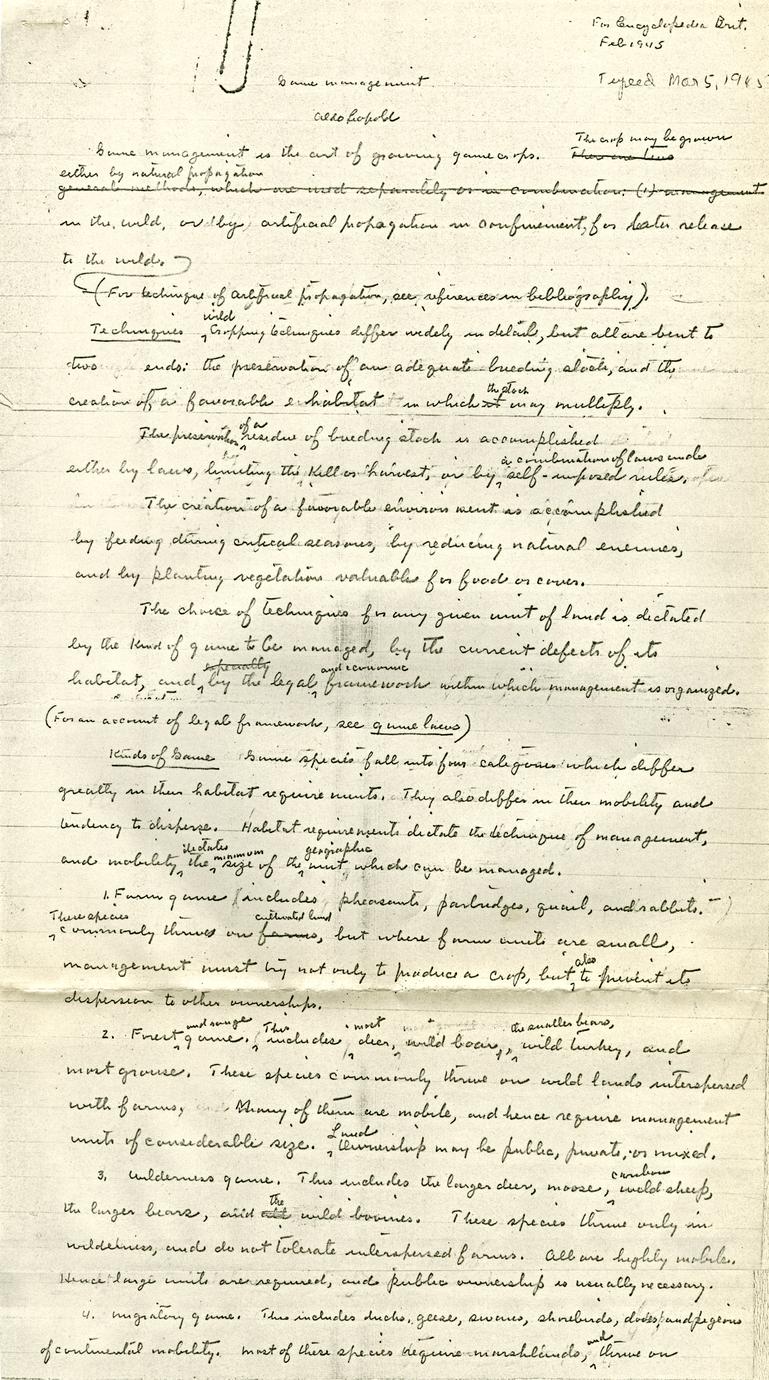 For Encyclopedia Brit.
Feb 1945
Typed Mar 5, 1945
Game management
Aldo Leopold
The crop may be grown
Game management is the art of growing game crops. There are two
either by natural propagation
general methods, which are used separately or in combination: (1) management
in the wild, or by artificial propagation in confinement, for later release
to the wild.
(For technique of artificial propagation, see references in bibliography).
wild
Techniques Cropping techniques differ widely in details, but all are bent to
two ends: the preservation of an adequate breeding stock, and the
the stock
creation of a favorable habitat in which it may multiply.
of a
The preservation residue of breeding stock is accomplished
a combination of laws and
either by laws, limiting the kill or harvest, or by self-imposed rules.
The creation of a favorable environment is accomplished
by feeding during critical seasons, by reducing natural enemies,
and by planting vegetation valuable for food or cover.
The choice of techniques for any given unit of land is dictated
by the kind of game to be managed, by the current defects of its
especially and economic
habitat, and by the legal framework within which management is organized.
(For an account of legal framework, see game laws)
Kinds of Game Game species fall into four categories which differ
greatly in their habitat requirements. They also differ in their mobility and
tendency to disperse. Habitat requirements dictate the technique of management,
dictates minimum geographic
and mobility the size of the unit which can be managed.
1. Farm game includes pheasants, partridges, quail, and rabbits.
These species cultivated land
commonly thrive on farms, but where farm units are small,
also
management must try not only to produce a crop, but to prevent its
dispersion to other ownerships.
and range This most the smaller bears,
2. Forest game. includes deer, wild boar, wild turkey, and
most grouse. These species commonly thrive on wild lands interspersed
with farms, Many of them are mobile, and hence require management
Land
units of considerable size. Ownership may be public, private, or mixed.
caribou
3. Wilderness game. This includes the larger deer, moose, wild sheep,
the
the larger bears, and all wild bovines. These species thrive only in
wilderness, and do not tolerate interspersed farms. All are highly mobile.
Hence large units are required, and public ownership is usually necessary.
4. Migratory game. This includes ducks, geese, swans, shorebirds, doves, and pigeons
and
of continental mobility. Most of these species require marshlands, thrive on